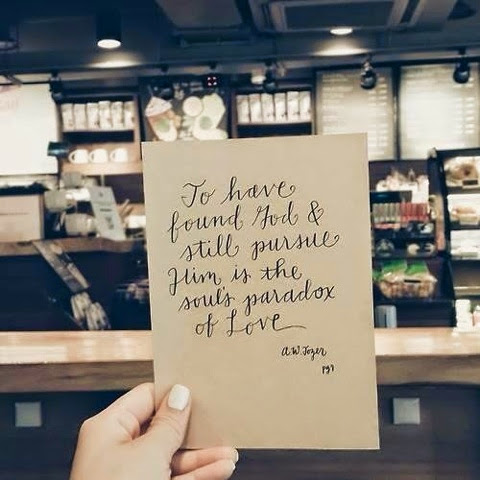 To have
found God &
still pursue
Him is the
soul's paradox
of Love
A.W. Tozer